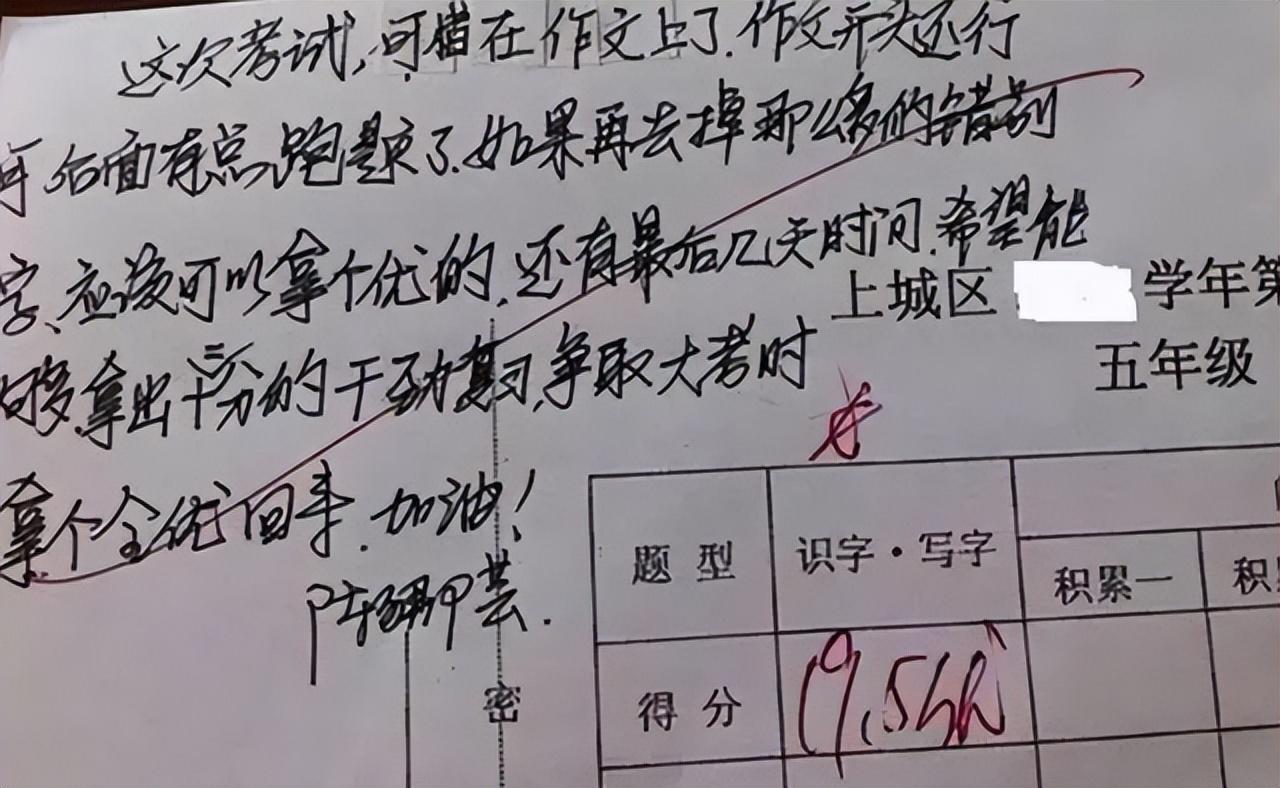 这次考试,可惜在作文上了.作文开头还行
后面有点跑题了.如果再去掉那么多的错别
字、应该可以拿个优的.还有最后几天时间.希望能
够拿出十二分的干劲复习,争取大考时
拿个全优回来.加油!
上城区 学年第
五年级
题 型
识字·写字
积累一
积
得 分
密